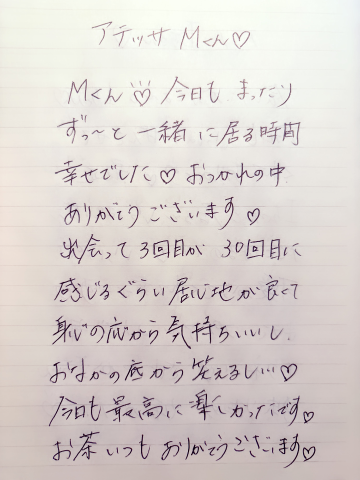 アテッサ Mくん♡
Mくん♡ 今日も まったり
ずっ〜と 一緒 に居る時間
幸せでした♡ おつかれの中
ありがとう ございます♡
出会って 3回目が 30回目に
感じるぐらい 居心地が 良くて
身心の底から 気持ちいいし、
おなかの底から 笑えるし…♡
今日も 最高に 楽しかったです♡
お茶 いつも ありがとうございます♡